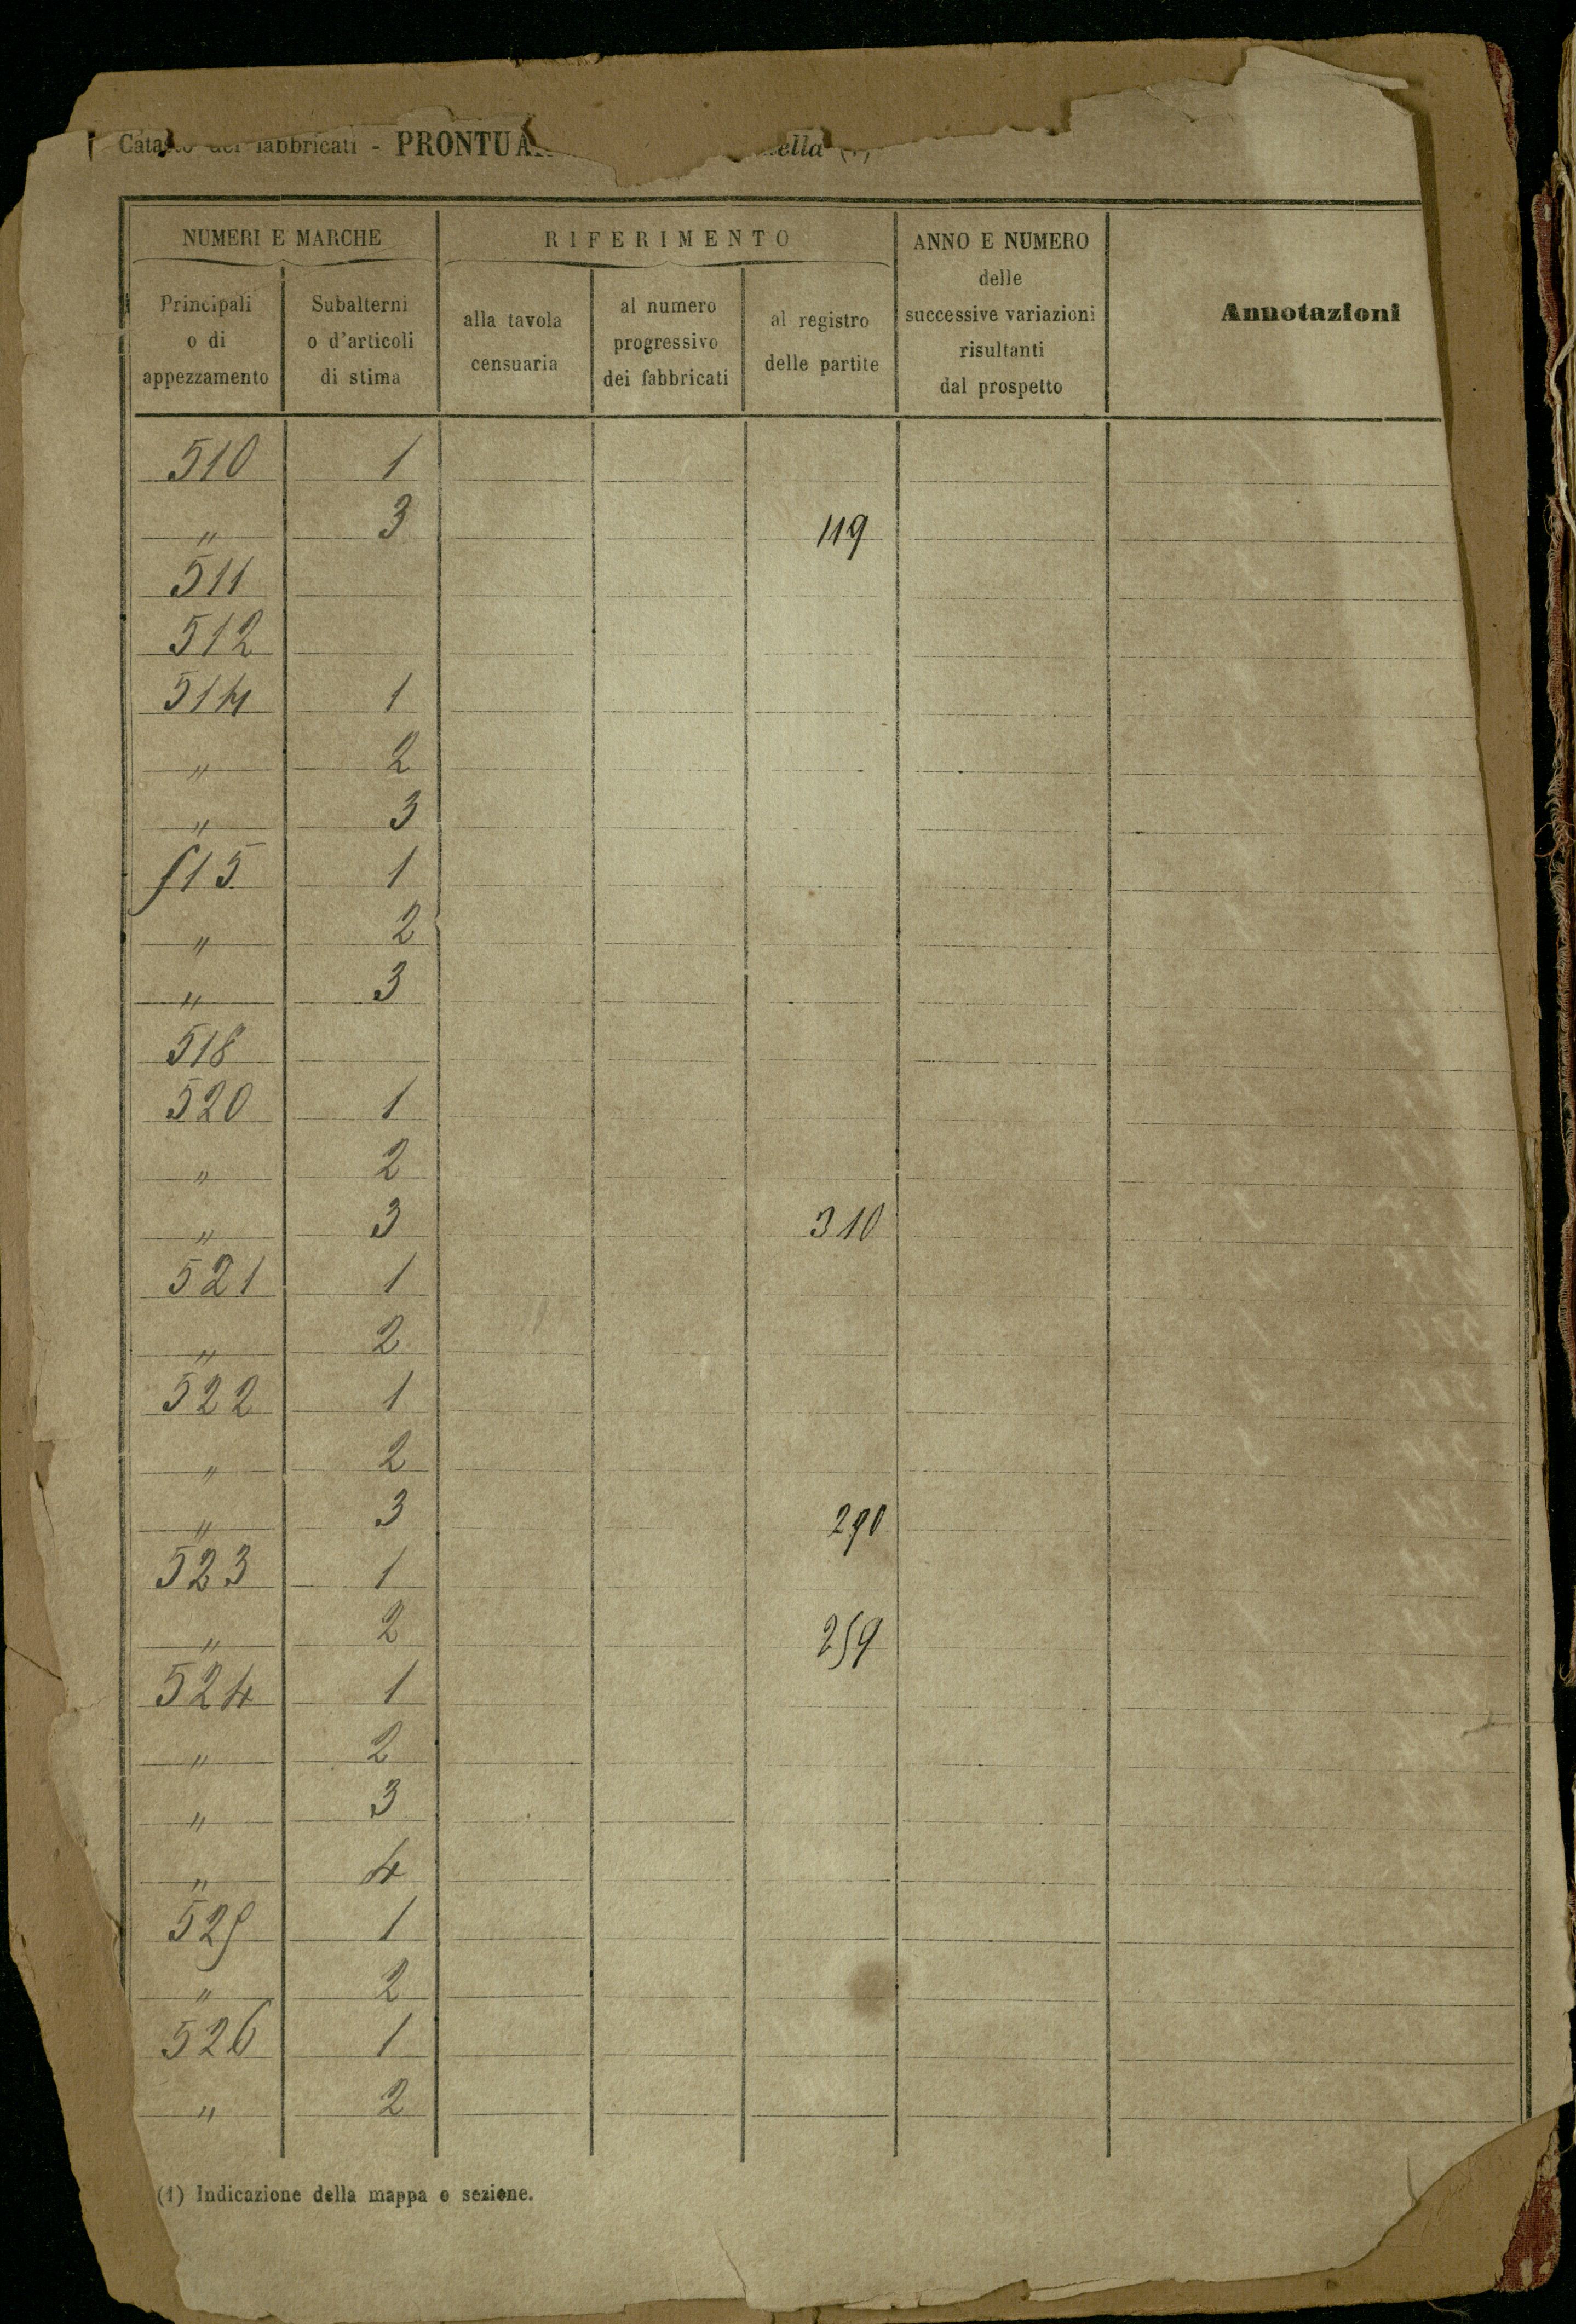 Catasto dei fabbricati - PRONTUA ella (1)
NUMERI E MARCHE
RIFERIMENTO
ANNO E NUMERO
delle
successive variazioni
risultanti
dal prospetto
Annotazioni
Principali
o di
appezzamento
Subalterni
o d'articoli
di stima
alla tavola
censuaria
al numero
progressivo
dei fabbricati
al registro
delle partite
510 1
" 3 119
511
512
514 1
" 2
" 3
515 1
" 2
" 3
518
520 1
" 2
" 3 310
521 1
" 2
522 1
" 2
" 3 290
523 1
" 2 259
524 1
" 2
" 3
" 4
525 1
" 2
526 1
" 2
(1) Indicazione della mappa o sezione.